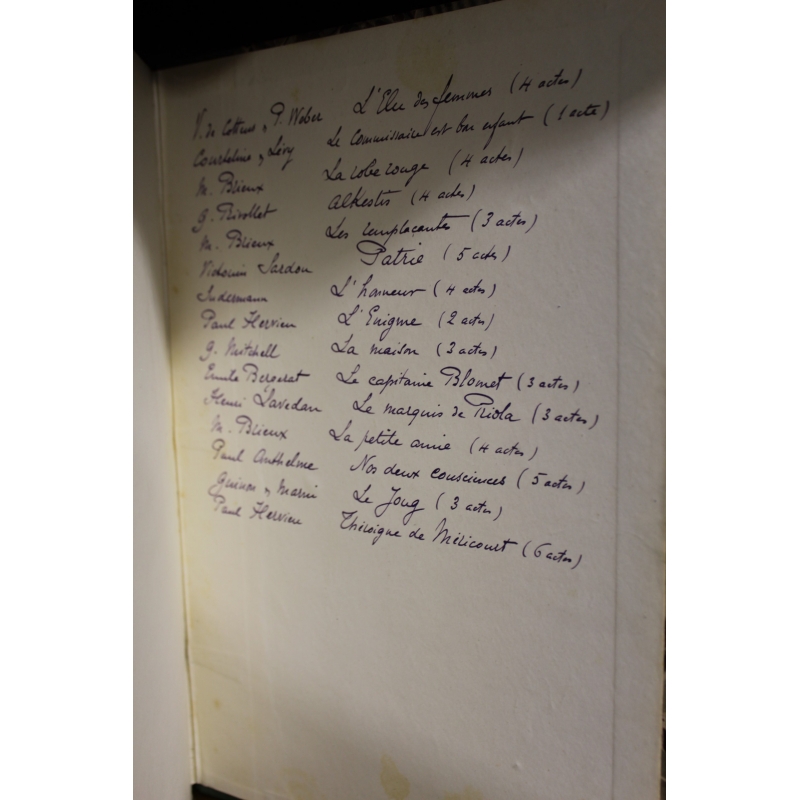 V. de Cottens y P. Weber L'Elu des femmes (4 actes)
Courteline y Lévy Le Commissaire est bon enfant (1 acte)
M. Brieux La robe rouge (4 actes)
G. Rivollet Alkestis (4 actes)
M. Brieux Les remplaçantes (3 actes)
Victorien Sardou Patrie (5 actes)
Sudermann L'honneur (4 actes)
Paul Hervieu L'Enigme (2 actes)
G. Mitchell La maison (3 actes)
Emile Bergerat Le capitaine Blomet (3 actes)
Henri Lavedan Le marquis de Priola (3 actes)
M. Brieux La petite amie (4 actes)
Paul Anthelme Nos deux consciences (5 actes)
Guinon y Marni Le Joug (3 actes)
Paul Hervieu Théroigne de Méricourt (6 actes)